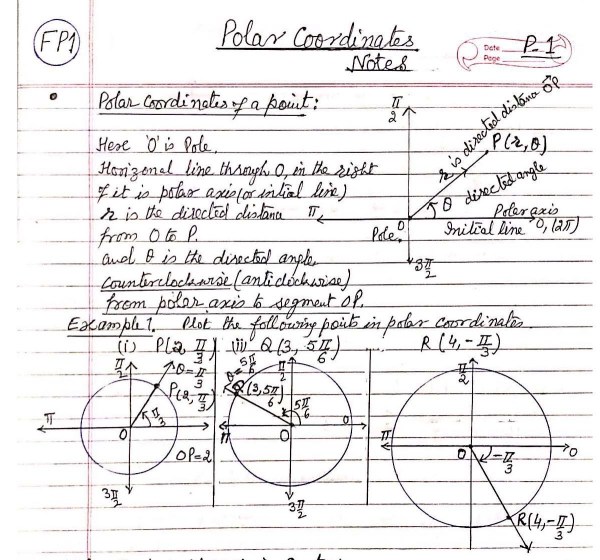 FP1
Polar Coordinates
Notes
Date
Page
P-1
Polar coordinates of a point:
Here 'O' is Pole.
Horizonal line through O, in the right
of it is polar axis (or initial line)
r is the directed distana
from O to P.
and θ is the directed angle,
counterclockwise (anticlockwise)
from polar axis to segment OP.
π/2
r is directed distana OP
P(r, θ)
θ directed angle
π
O
Polar axis
Pole.
Initial line 0, (2π)
3π/2
Example 1. Plot the following points in polar coordinates.
(i) P(2, π/3)
π/2
θ = π/3
P(2, π/3)
π/3
π
O
OP=2
3π/2
(ii) Q(3, 5π/6)
θ = 5π/6
π/2
Q(3, 5π/6)
5π/6
0
π
O
3π/2
R(4, -π/3)
π/2
π
O
-π/3
0
R(4, -π/3)